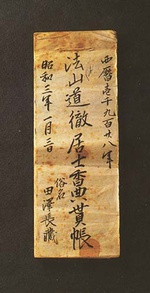 西暦壱千九百廿八年
法山道徹居士香奠帳
俗名
田澤長蔵
昭和三年一月三日